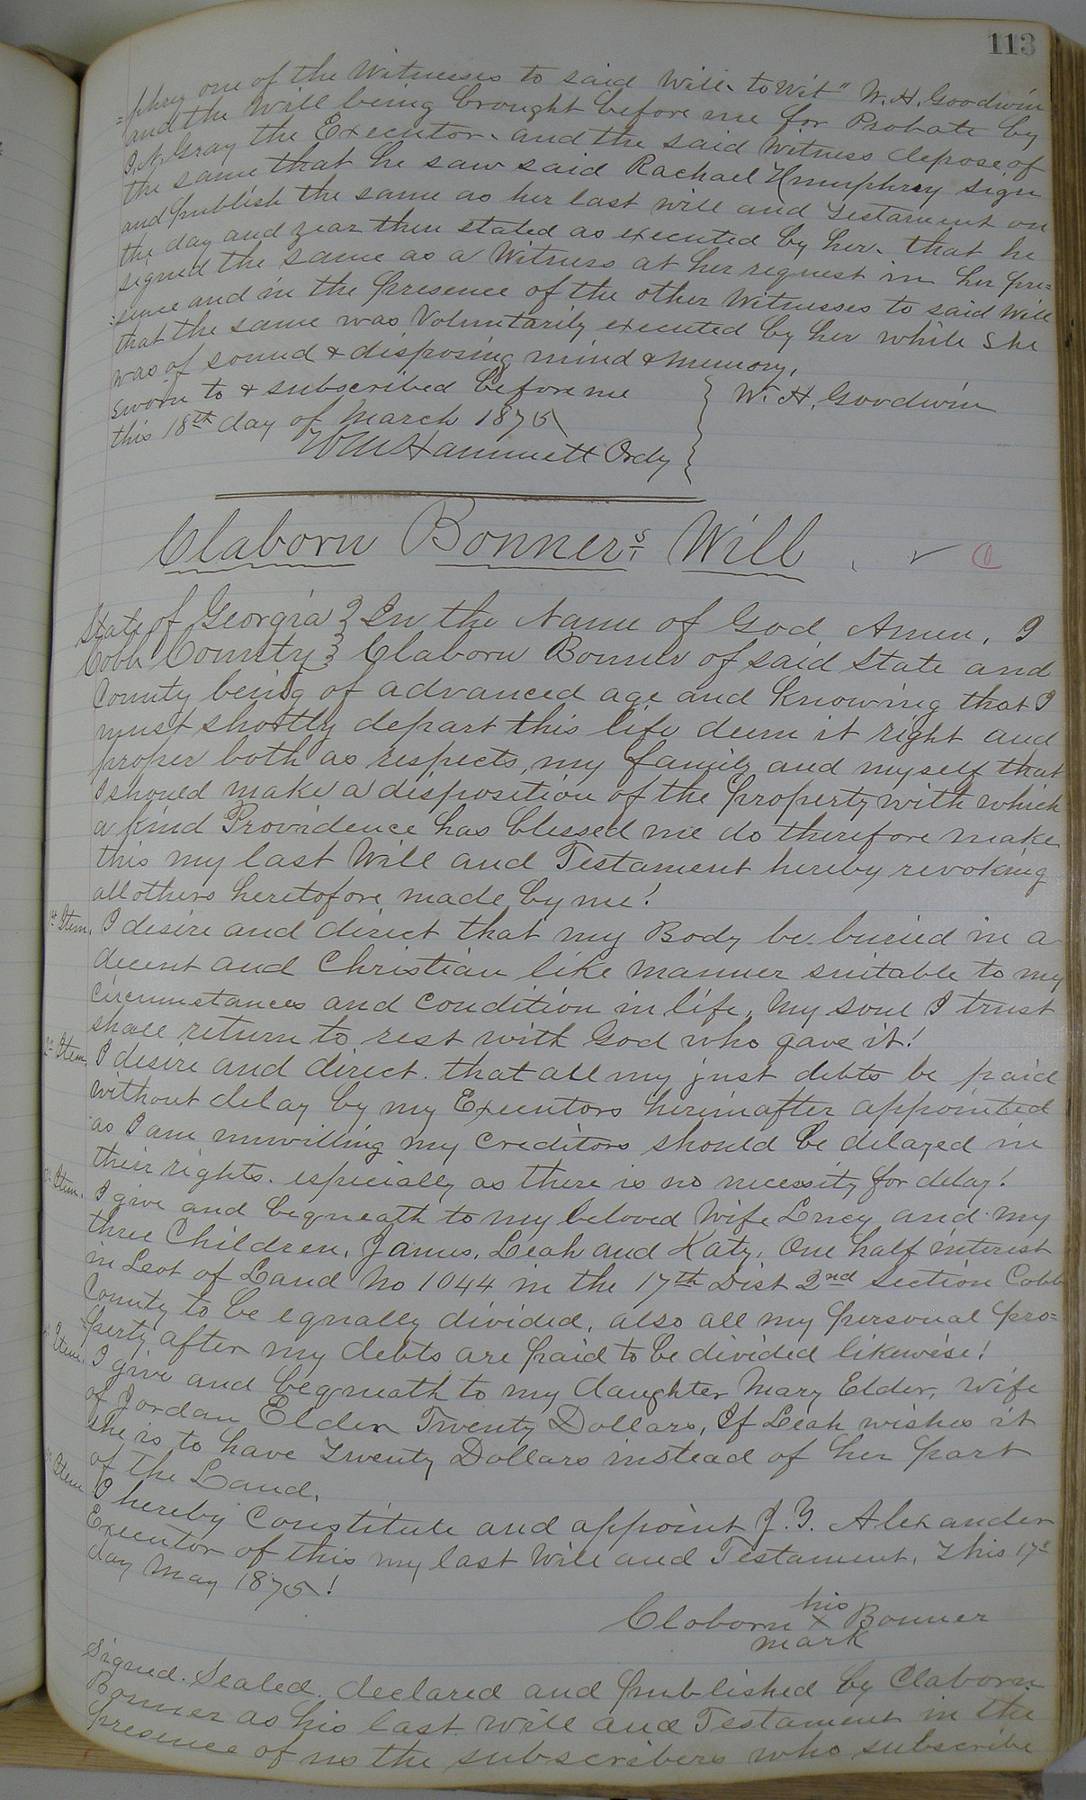 113
=phrey one of the Witnesses to said Will. to Wit" W. H. Goodwin
and the Will being brought before me for Probate by
Gray the Executor. and the said Witness depose of
the same that he saw said Rachael Humphrey sign
and publish the same as her last will and Testament on
the day and year then stated as executed by her. that he
signed the same as a Witness at her request in her pre=
:sence and in the presence of the other Witnesses to said Will
that the same was Voluntarily executed by her while She
was of sound & disposing mind & memory,
Sworn to & subscribed before me } W. H. Goodwin
this 18th day of March 1875
Wm Hammett Ordy
Claborn Bonner,s Will
State of Georgia } In the Name of God Amen, I
Cobb County } Claborn Bonner of said State and
County being of advanced age and Knowing that I
must shortly depart this life deem it right and
proper both as respects my family and myself that
I should make a disposition of the property with which
a kind Providence has blessed me do therefore make
this my last Will and Testament hereby revoking
all others heretofore made by me!
1st Item. I desire and direct that my Body be buried in a
decent and Christian like manner suitable to my
circumstances and condition in life, My soul I trust
shall return to rest with God who gave it!
2nd Item I desire and direct. that all my just debts be paid
without delay by my Executors hereinafter appointed
as I am unwilling my creditors should be delayed in
their rights. especially as there is no necessity for delay!
Item. I give and bequeath to my beloved Wife Lucy and my
three Children, James, Leah and Katy. One half interest
in Lot of Land No 1044 in the 17th Dist 2nd Section Cobb
County to be equally divided, also all my personal pro=
perty after my debts are paid to be divided likewise!
Item. I give and bequeath to my daughter Mary Elder, Wife
of Jordan Elder Twenty Dollars, If Leah wishes it
she is to have Twenty Dollars instead of her part
of the Land.
Item I hereby Constitute and appoint J. G. Alexander
Executor of this my last Will and Testament, This 17th
day May 1875!
his
Claborn x Bonner
mark
Signed. Sealed. declared and published by Claborn
Bonner as his last Will and Testament in the
presence of us the subscribers who subscribe